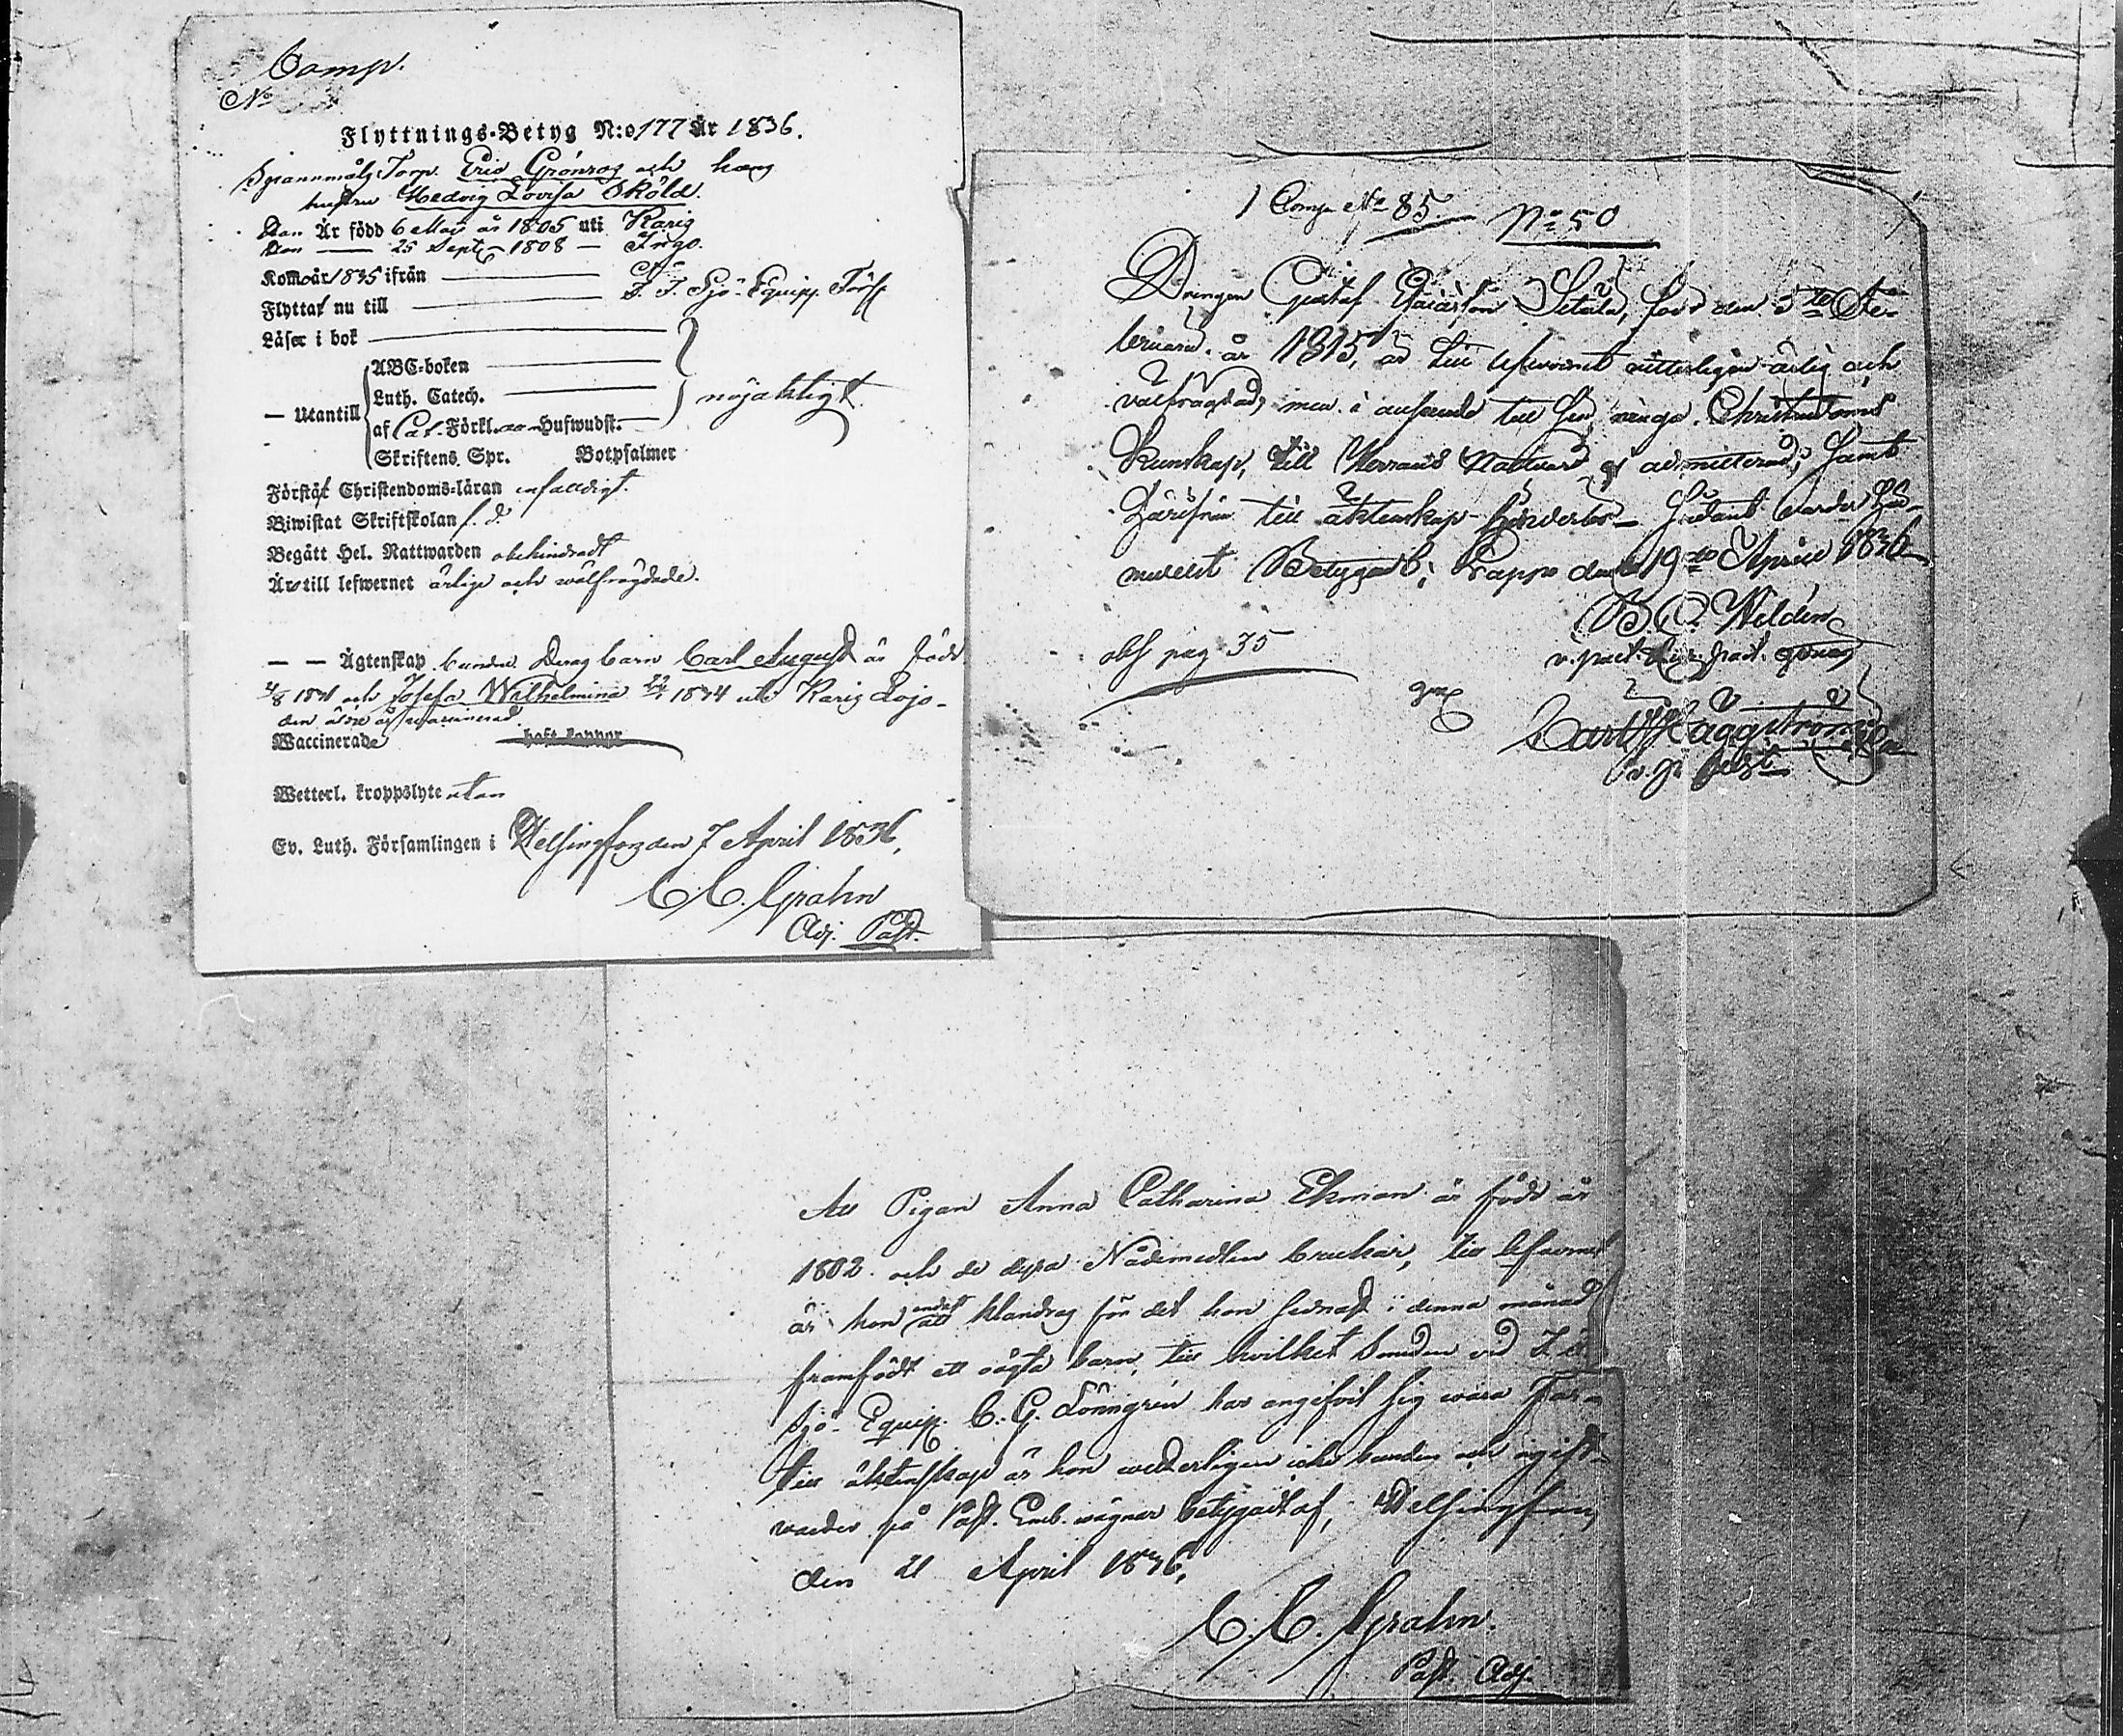 Comp.
No
Flyttnings-Betyg N:o 177 År 1836.
Spannmåls Torp. Eric Grönroos och hans
hustru Hedvig Lovisa Sköld.
Han Är född 6 Maj år 1805 uti Karis
Hon — 25 Sept. 1808 — Ingo.
Kom år 1835 ifrån
Flyttar nu till F. F. Sjö-Equipp. Förs.
Läser i bok
ABC-boken
Luth. Catech.
— Utantill nöjaktligt.
af Cat. Förkl. Hufwudst.
Skriftens Spr. Botpsalmer
Förstår Christendoms-läran enfaldigt.
Biwistat Skriftskolan f. d.
Begått Hel. Nattwarden obehindradt
Äro till lefwernet ärlige och wälfrägdade.
— — Ägtenskap bundne. Deras barn Carl August är född
1831 och Josefa Wilhelmina 1834 uti Karis Lojo-
den äldre är vaccinerad.
Waccinerade haft koppor
Wetterl. kroppslyte utan
Ev. Luth. Församlingen i Helsingfors den 7 April 1836.
C. C. Grahn
Adj. Past.
1 Comp No 85. No 50
Drengen Gustaf Setälä, född den 5te Fe-
bruarii år 1815, är till lefvernet vitterligen ärlig och
välfrägdad, men i anseende till sin ringa Christendoms
Kunskap, till Herrans Nattvard ej admitterad; samt
härifrån till äktenskap hinderlös. Sådant varder här-
medelst Betygadt; Pappo den 19de April 1836
B. O. Weldén
v. past.
obs pag 35
Carl Häggström
Att Pigan Anna Catharina Ekman är född år
1802 och de dyra Nådemedlen brukar, till lefvernet
är hon endast att klandras för det hon sednast i denna månad
framfödt ett oägta barn, till hvilket Smeden vid F. F.
Sjö-Equip. C. G. Lönngrén har angifvit sig wara Far.
till äktenskap är hon wetterligen icke bunden och ogift
warder på Past. Emb. wägnar betygadt af, Helsingfors
den 21 April 1836.
C. C. Grahn.
Past. Adj.